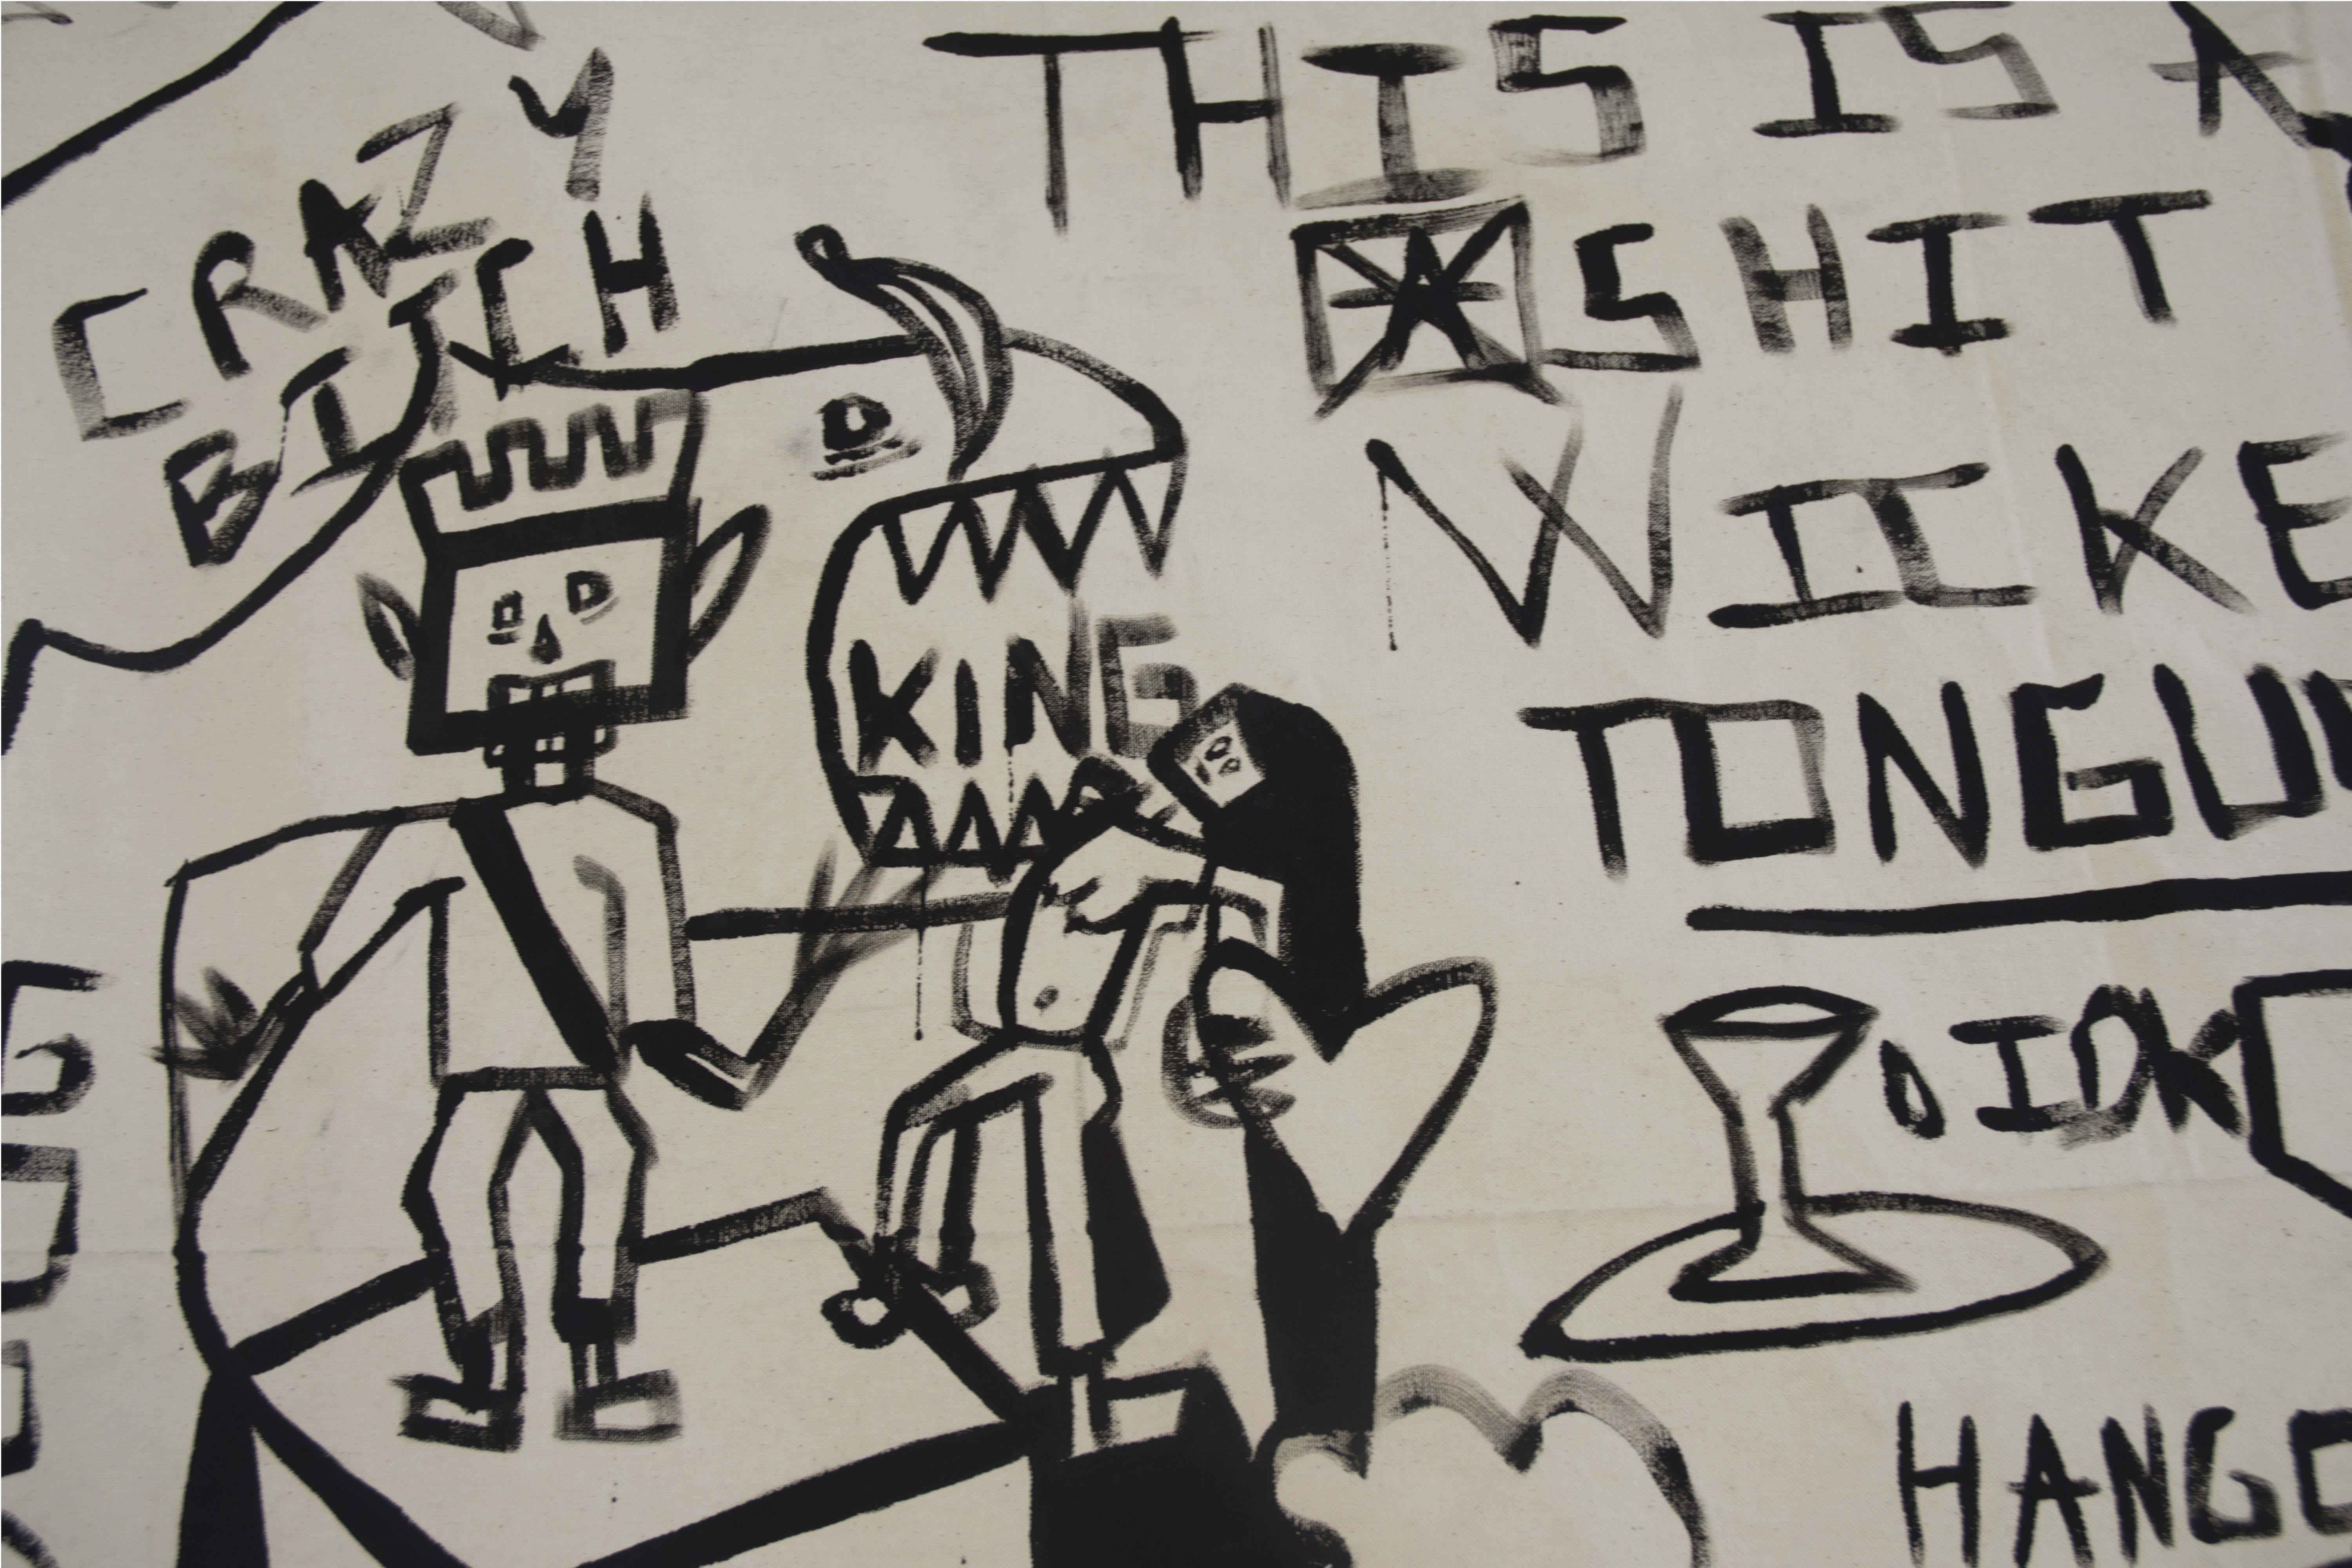 CRAZY
BITCH
THIS IS A
A SHIT
WICKE
TONGU
KING
IDK
HANGO